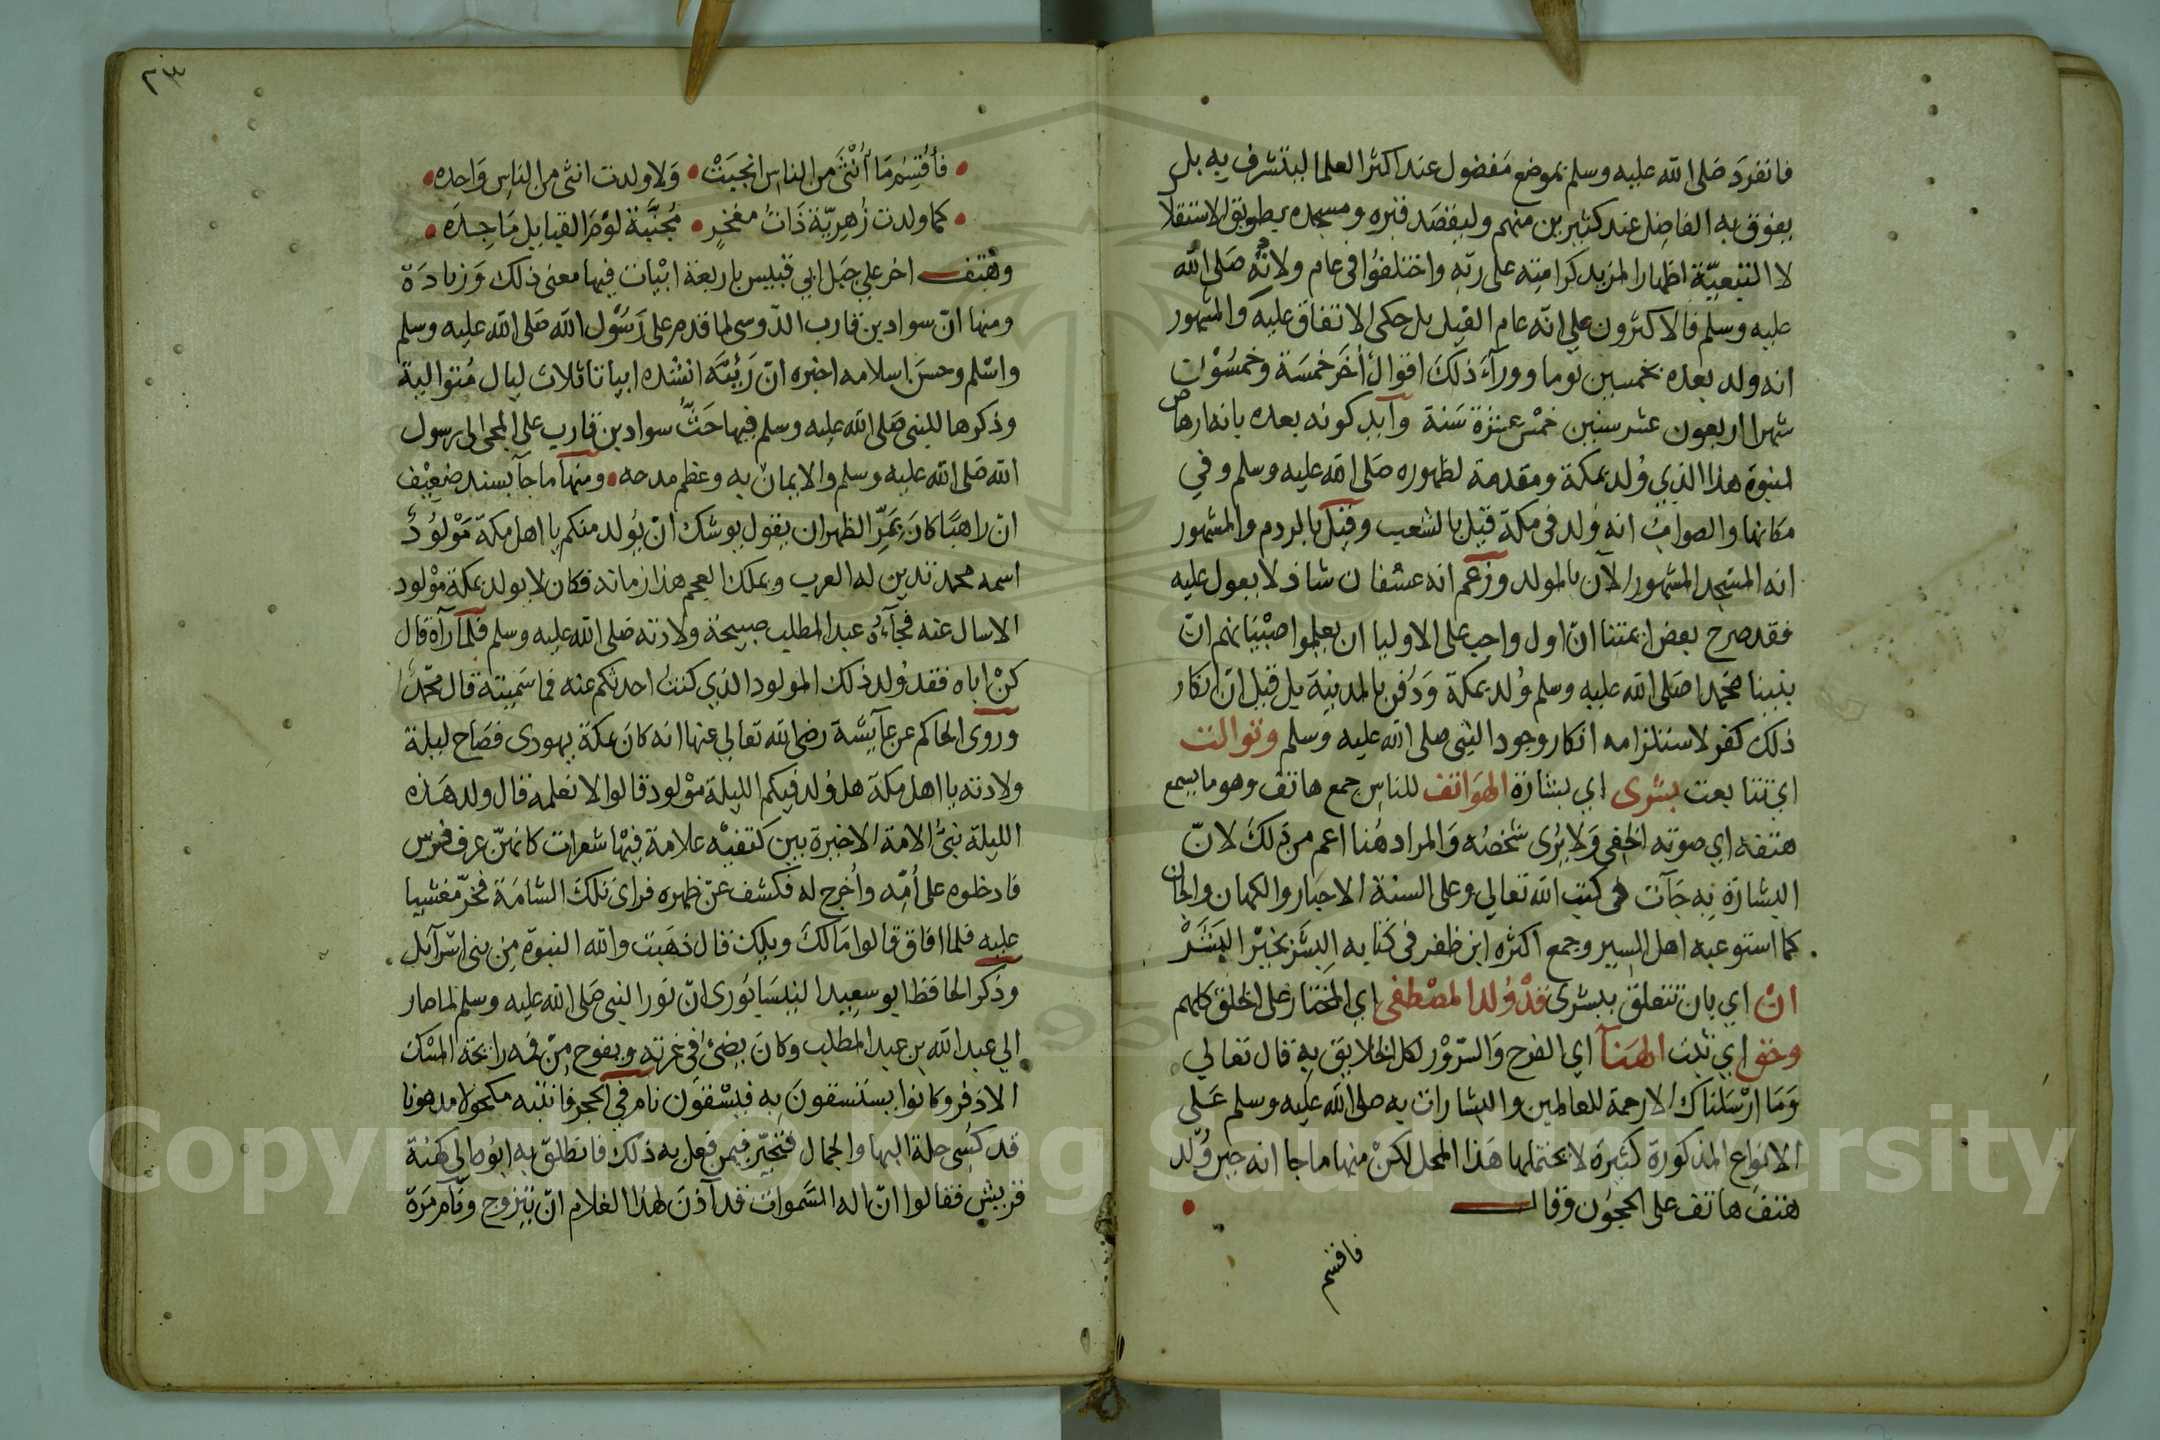 فانفرد صلى الله عليه وسلم بموضع مفضول عند اكثر العلما ليتشرف به بل
يفوق به الفاضل عند كثيرين منهم وليقصد قبره ومسجده بطريق الاستقلا
لا التبعية اظهارا لمزيد كرامته على ربه واختلفوا في عام ولادته صلى الله
عليه وسلم فالاكثرون على انه عام الفيل بل حكى الاتفاق عليه والمشهور
انه ولد بعده بخمسين يوما ووراء ذلك اقوال اخر خمسة وخمسون
شهرا اربعون عشر سنين خمس عشرة سنة وايد كونه بعده بانه ارهاص
لنبوة هذا الذي ولد بمكة ومقدمة لظهوره صلى الله عليه وسلم وفي
مكانها والصواب انه ولد في مكة قيل بالشعب وقيل بالردم والمشهور
انه المسجد المشهور الآن بالمولد وزعم انه عسفان شاذ لا يعول عليه
فقد صرح بعض ائمتنا ان اول واجب على الاوليا ان يعلموا صبيانهم ان
نبينا محمدا صلى الله عليه وسلم ولد بمكة ودفن بالمدينة بل قيل ان انكار
ذلك كفر لاستلزامه انكار وجود النبي صلى الله عليه وسلم وتوالت
اي تتابعت بشرى اي بشارة الهواتف للناس جمع هاتف وهو ما يسمع
هتفه اي صوته الخفي ولا يرى شخصه والمراد هنا اعم من ذلك لان
البشارة به جآت في كتب الله تعالى وعلى السنة الاحبار والكهان والجان
كما استوعبه اهل السير وجمع اكثره ابن ظفر في كتابه البشر بخير البشر
ان اي بان تتعلق ببشرى قد ولد المصطفى اي المختار على الخلق كلهم
وحق اي ثبت الهنآ اي الفرح والسرور لكل الخلايق به قال تعالى
وما ارسلناك الا رحمة للعالمين والبشارات به صلى الله عليه وسلم على
الانواع المذكورة كثيرة لا يحتملها هذا المحل لكن منها ما جا انه حين ولد
هتف هاتف على الحجون وقال
فاقسم
٢٣
فأقسم ما انثى من الناس انجبت • ولا ولدت انثى من الناس واحده •
كما ولدت زهرية ذات مفخر • مجنبة لؤم القبايل ماجده •
وهتف اخر على جبل ابي قبيس باربعة ابيات فيها معنى ذلك وزيادة
ومنها ان سواد بن قارب الدوسي لما قدم على رسول الله صلى الله عليه وسلم
واسلم وحسن اسلامه اخبره ان رئيه انشده ابياتا ثلاث ليال متوالية
وذكرها للنبي صلى الله عليه وسلم فيها حث سواد بن قارب على المجى الى رسول
الله صلى الله عليه وسلم والايمان به وعظم مدحه • ومنها ما جآ بسند ضعيف
ان راهبا كان بمر الظهران يقول يوشك ان يولد منكم يا اهل مكة مولود
اسمه محمد تدين له العرب ويملك العجم هذا زمانه فكان لا يولد بمكة مولود
الا سال عنه فجآءه عبد المطلب صبيحة ولادته صلى الله عليه وسلم فلما رآه قال
كن اباه فقد ولد ذلك المولود الذي كنت احدثكم عنه فما سميته قال محمد
وروى الحاكم عن عآيشة رضي الله تعالى عنها انه كان بمكة يهودي فصاح ليلة
ولادته يا اهل مكة هل ولد فيكم الليلة مولود قالوا لا نعلمه قال ولد هذه
الليلة نبي الامة الاخيرة بين كتفيه علامة فيها شعرات كانهن عرف فرس
فادخلوه على أمه واخرج له فكشف عن ظهره فراى تلك الشامة فخر مغشيا
عليه فلما افاق قالوا مالك ويلك قال ذهبت والله النبوة من بني اسرآيل
وذكر الحافظ ابو سعيد النيسابوري ان نور النبي صلى الله عليه وسلم لما صار
الى عبد الله بن عبد المطلب وكان يضئ في غرته ويفوح من فمه رايحة المسك
الاذفر وكانوا يستسقون به فيسقون نام في الحجر فانتبه مكحولا مدهونا
قد كسي حلة البها والجمال فتحير فيمن فعل به ذلك فانطلق به ابوه الى كهنة
قريش فقالوا ان اله السموات قد آذن لهذا الغلام ان يتزوج ونام مرة
Copyright © King Saud University